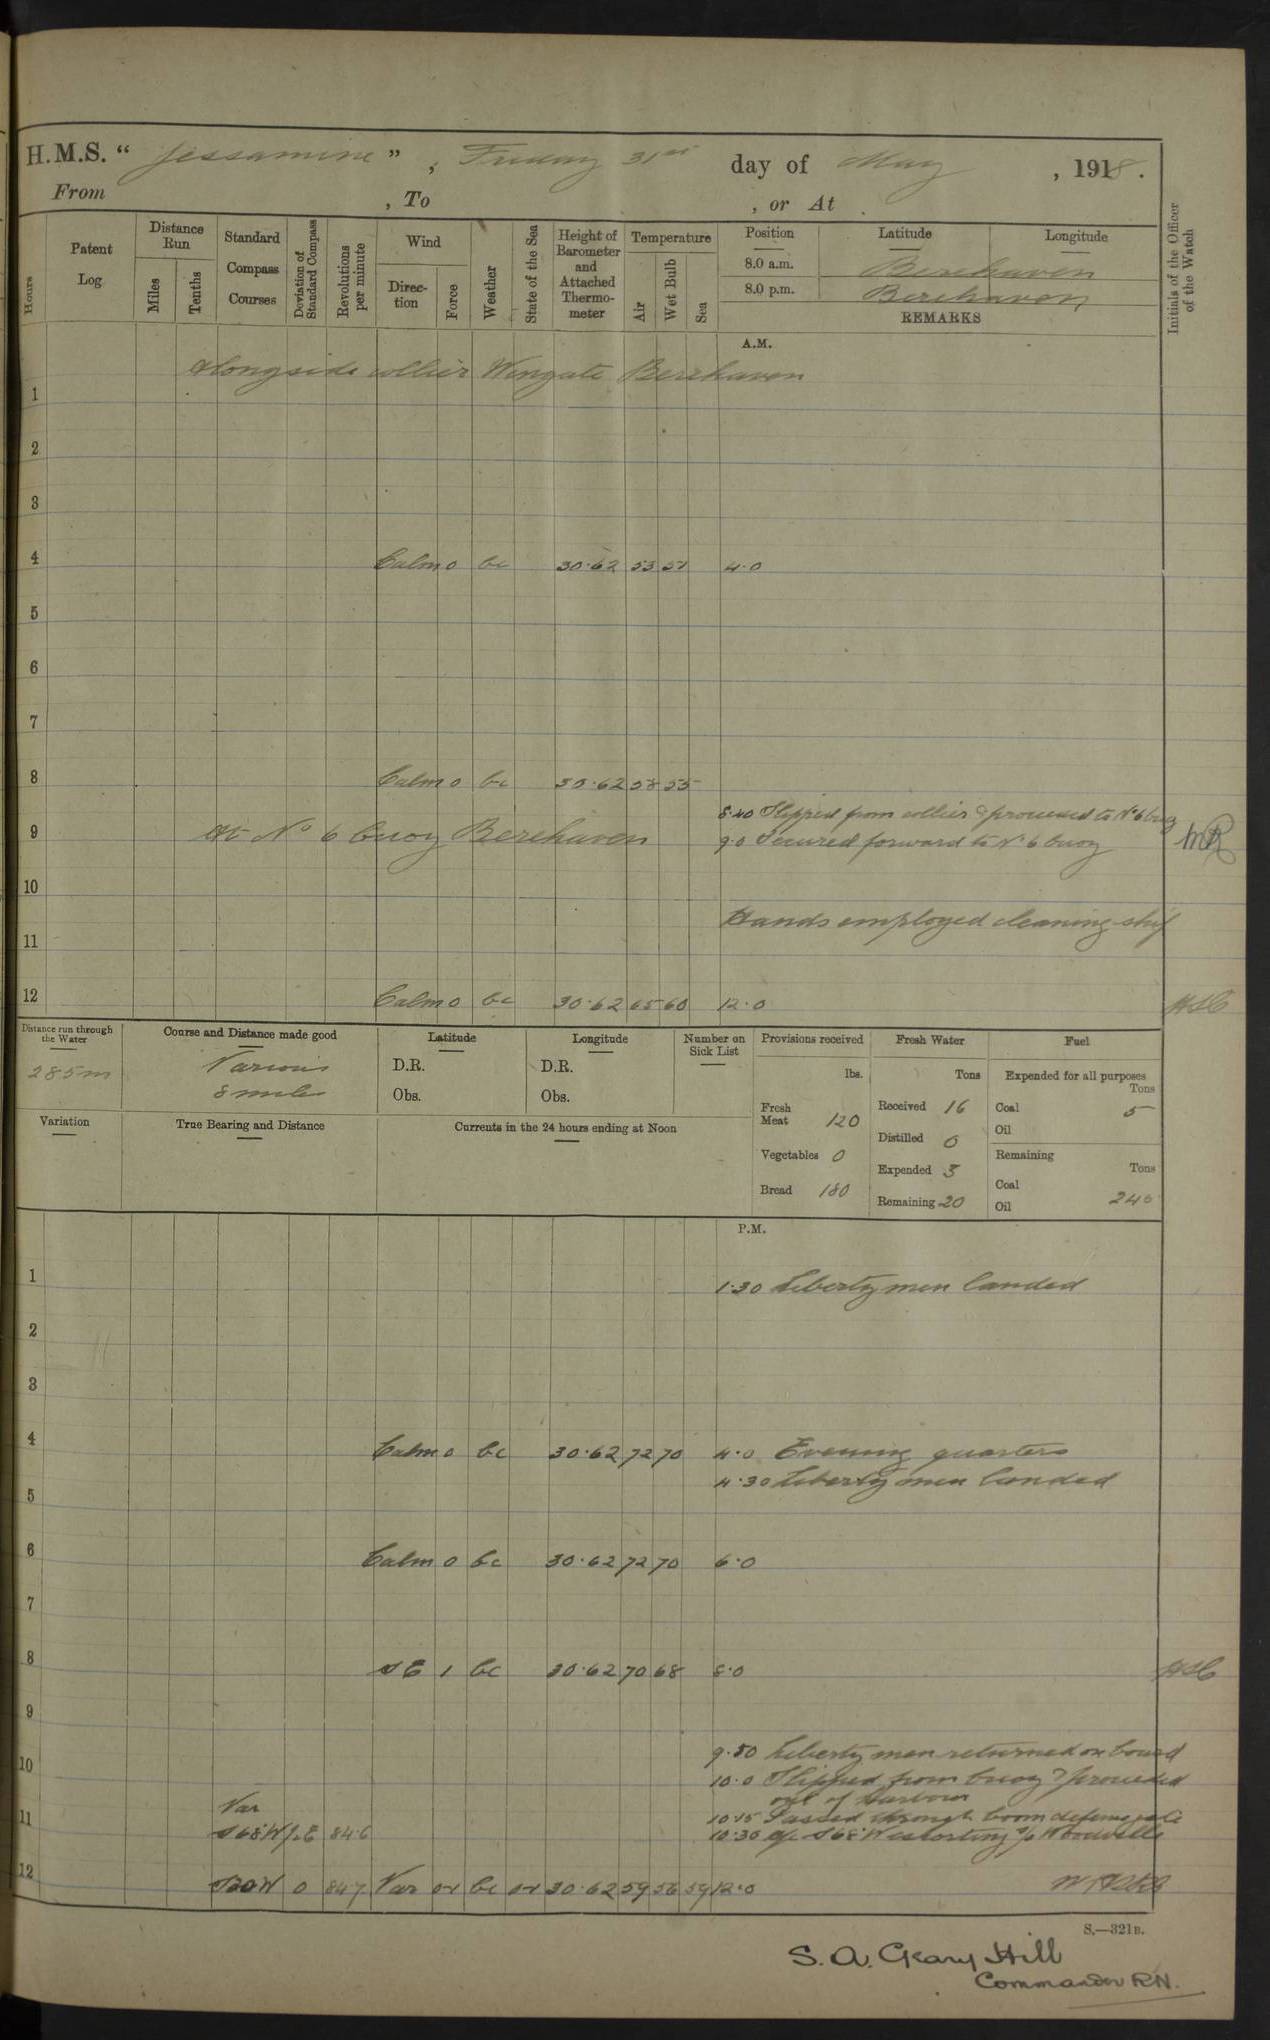 H.M.S. " Jessamine " , Friday 31st day of May , 1918 .
From , To , or At
Hours
Patent Log
Distance Run
Miles
Tenths
Standard Compass Courses
Deviation of Standard Compass
Revolutions per minute
Wind
Direction
Force
Weather
State of the Sea
Height of Barometer and Attached Thermometer
Temperature
Air
Wet Bulb
Sea
Position Latitude Longitude
8.0 a.m. Berehaven
8.0 p.m. Berehaven
REMARKS
Initials of the Officer of the Watch
A.M.
Alongside collier Wingate Berehaven
1
2
3
4 Calm 0 bc 30.62 53 51 4.0
5
6
7
8 Calm 0 bc 30.62 58 55
8.40 Slipped from collier & proceeded to No 6 buoy
9 At No 6 buoy Berehaven 9.0 Secured forward to No 6 buoy
10
Hands employed cleaning ship
11
12 Calm 0 bc 30.62 65 60 12.0
Distance run through the Water
285m
Course and Distance made good
Various
8 miles
Latitude
D.R.
Obs.
Longitude
D.R.
Obs.
Number on Sick List
Provisions received
lbs.
Fresh Meat 120
Vegetables 0
Bread 180
Fresh Water
Tons
Received 16
Distilled 0
Expended 3
Remaining 20
Fuel
Expended for all purposes
Tons
Coal 5
Oil
Remaining
Tons
Coal
Oil 240
Variation
True Bearing and Distance
Currents in the 24 hours ending at Noon
P.M.
1 1.30 Liberty men landed
2
3
4 Calm 0 bc 30.62 72 70 4.0 Evening quarters
4.30 Liberty men landed
5
6 Calm 0 bc 30.62 72 70 6.0
7
8 SE 1 bc 30.62 70 68 8.0
9
9.50 Liberty men returned on board
10 10.0 Slipped from buoy & proceeded
out of Harbour
Var 10.15 Passed through boom defence gate
11 S68°W 84.6 10.30 a/c S68°W escorting
12 0 84.7 Var bc 30.62 59 56 59 12.0
S.—321B.
S. A. Geary Hill
Commander RN.